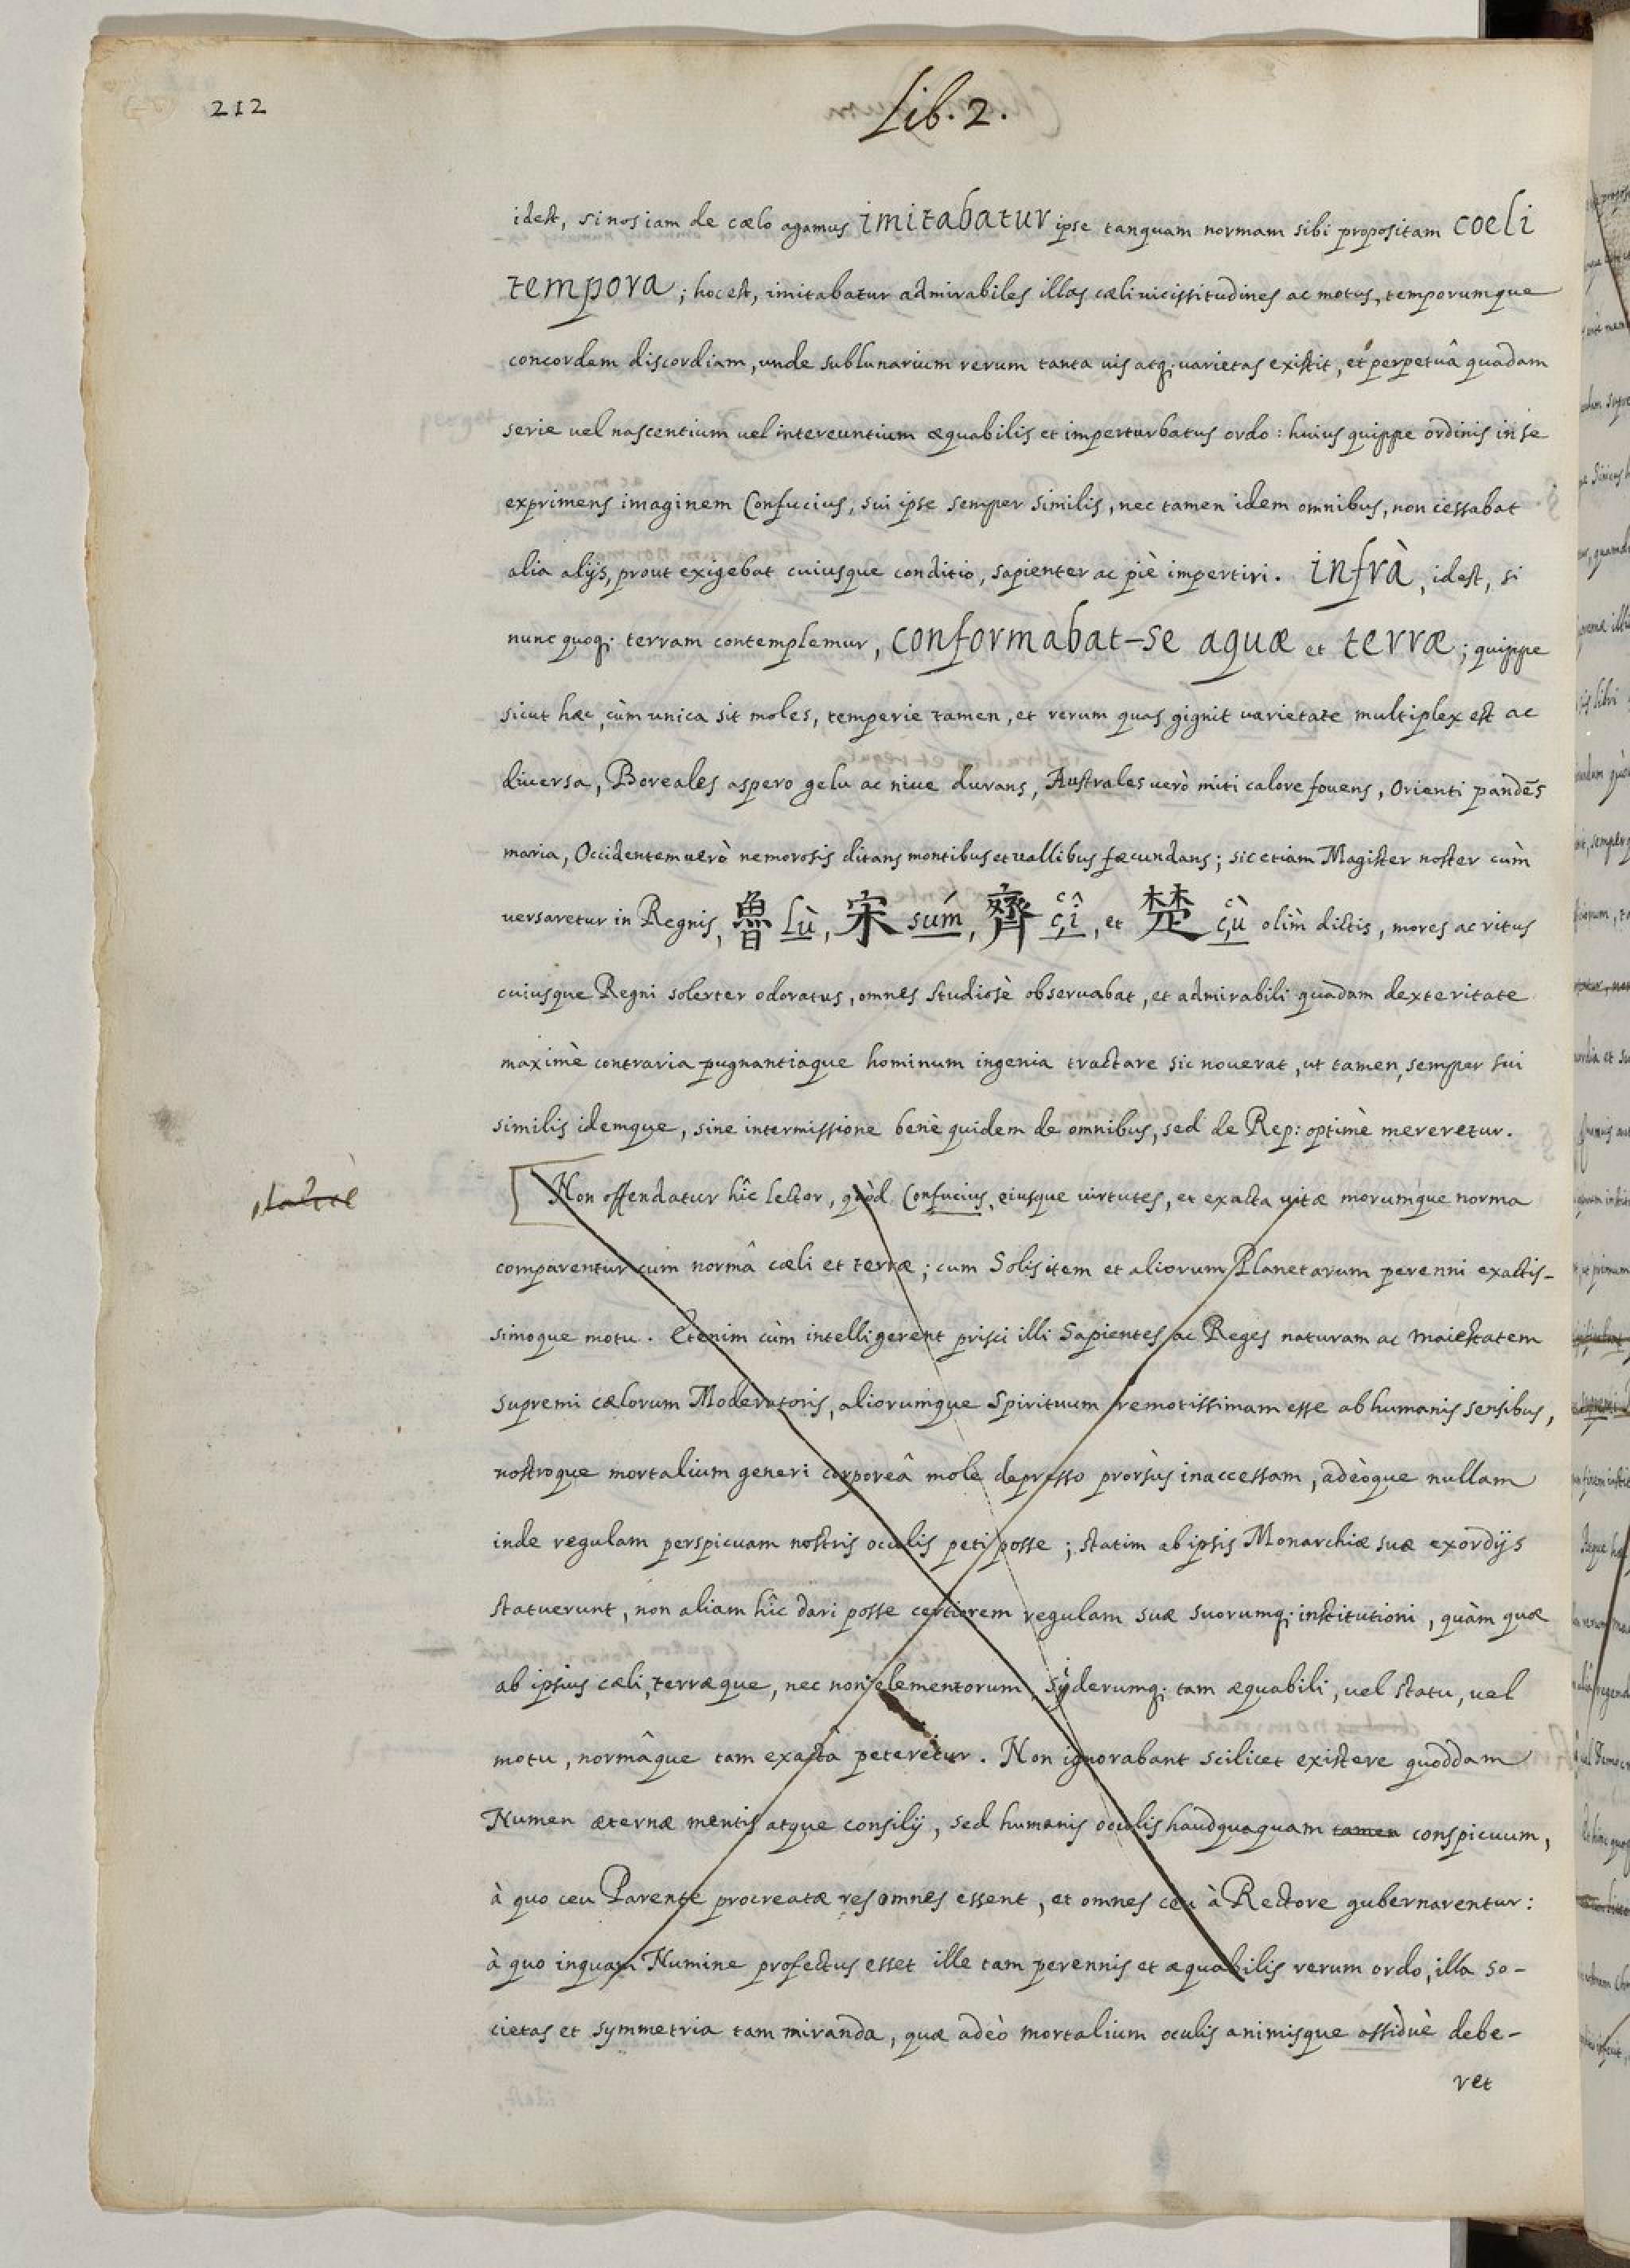 212
Lib. 2.
idest, si nos iam de cælo agamus imitabatur ipse tanquam normam sibi propositam coeli
tempora; hoc est, imitabatur admirabiles illas cæli uicissitudines ac motus, temporumque
concordem discordiam, unde sublunarium rerum tanta uis atq; uarietas existit, et perpetuâ quadam
serie uel nascentium uel intereuntium æquabilis et imperturbatus ordo: huius quippe ordinis in se
exprimens imaginem Confucius, sui ipse semper similis, nec tamen idem omnibus, non cessabat
alia alijs, prout exigebat cuiusque conditio, sapienter ac piè impertiri. infrà, idest, si
nunc quoq; terram contemplemur, conformabat-se aquæ et terræ; quippe
sicut hæc, cùm unica sit moles, temperie tamen, et rerum quas gignit uarietate multiplex est ac
diuersa, Boreales aspero gelu ac niue durans, Australes uerò miti calore fouens, Orienti pandēs
maria, Occidentem uerò nemorosis ditans montibus et uallibus fæcundans; sic etiam Magister noster cùm
uersaretur in Regnis, 魯 Lù, 宋 súm, 齊 çî, et 楚 çù olim dictis, mores ac ritus
cuiusque Regni solerter odoratus, omnes studiosè obseruabat, et admirabili quadam dexteritate
maximè contraria pugnantiaque hominum ingenia tractare sic nouerat, ut tamen, semper sui
similis idemque, sine intermissione benè quidem de omnibus, sed de Rep: optimè mereretur.
[Non offendatur hîc lector, quòd Confucius, eiusque uirtutes, et exacta uitæ morumque norma
comparentur cum normâ cæli et terræ; cum Solis item et aliorum Planetarum perenni exactis-
simoque motu. Etenim cùm intelligerent prisci illi Sapientes ac Reges naturam ac maiestatem
supremi cælorum Moderatoris, aliorumque Spirituum remotissimam esse ab humanis sensibus,
nostroque mortalium generi corporeâ mole depresso prorsùs inaccessam, adeòque nullam
inde regulam perspicuam nostris oculis peti posse; statim ab ipsis Monarchiæ suæ exordijs
statuerunt, non aliam hîc dari posse certiorem regulam suæ suorumq; institutioni, quàm quæ
ab ipsius cæli, terræque, nec non elementorum, siderumq; tam æquabili, uel statu, uel
motu, normâque tam exacta peteretur. Non ignorabant scilicet existere quoddam
Numen æternæ mentis atque consilij, sed humanis oculis haudquaquam tamen conspicuum,
à quo ceu Parente procreatæ res omnes essent, et omnes ceu à Rectore gubernarentur:
à quo inquam Numine profectus esset ille tam perennis et æquabilis rerum ordo, illa so-
cietas et symmetria tam miranda, quæ adeò mortalium oculis animisque assiduè debe-
ret